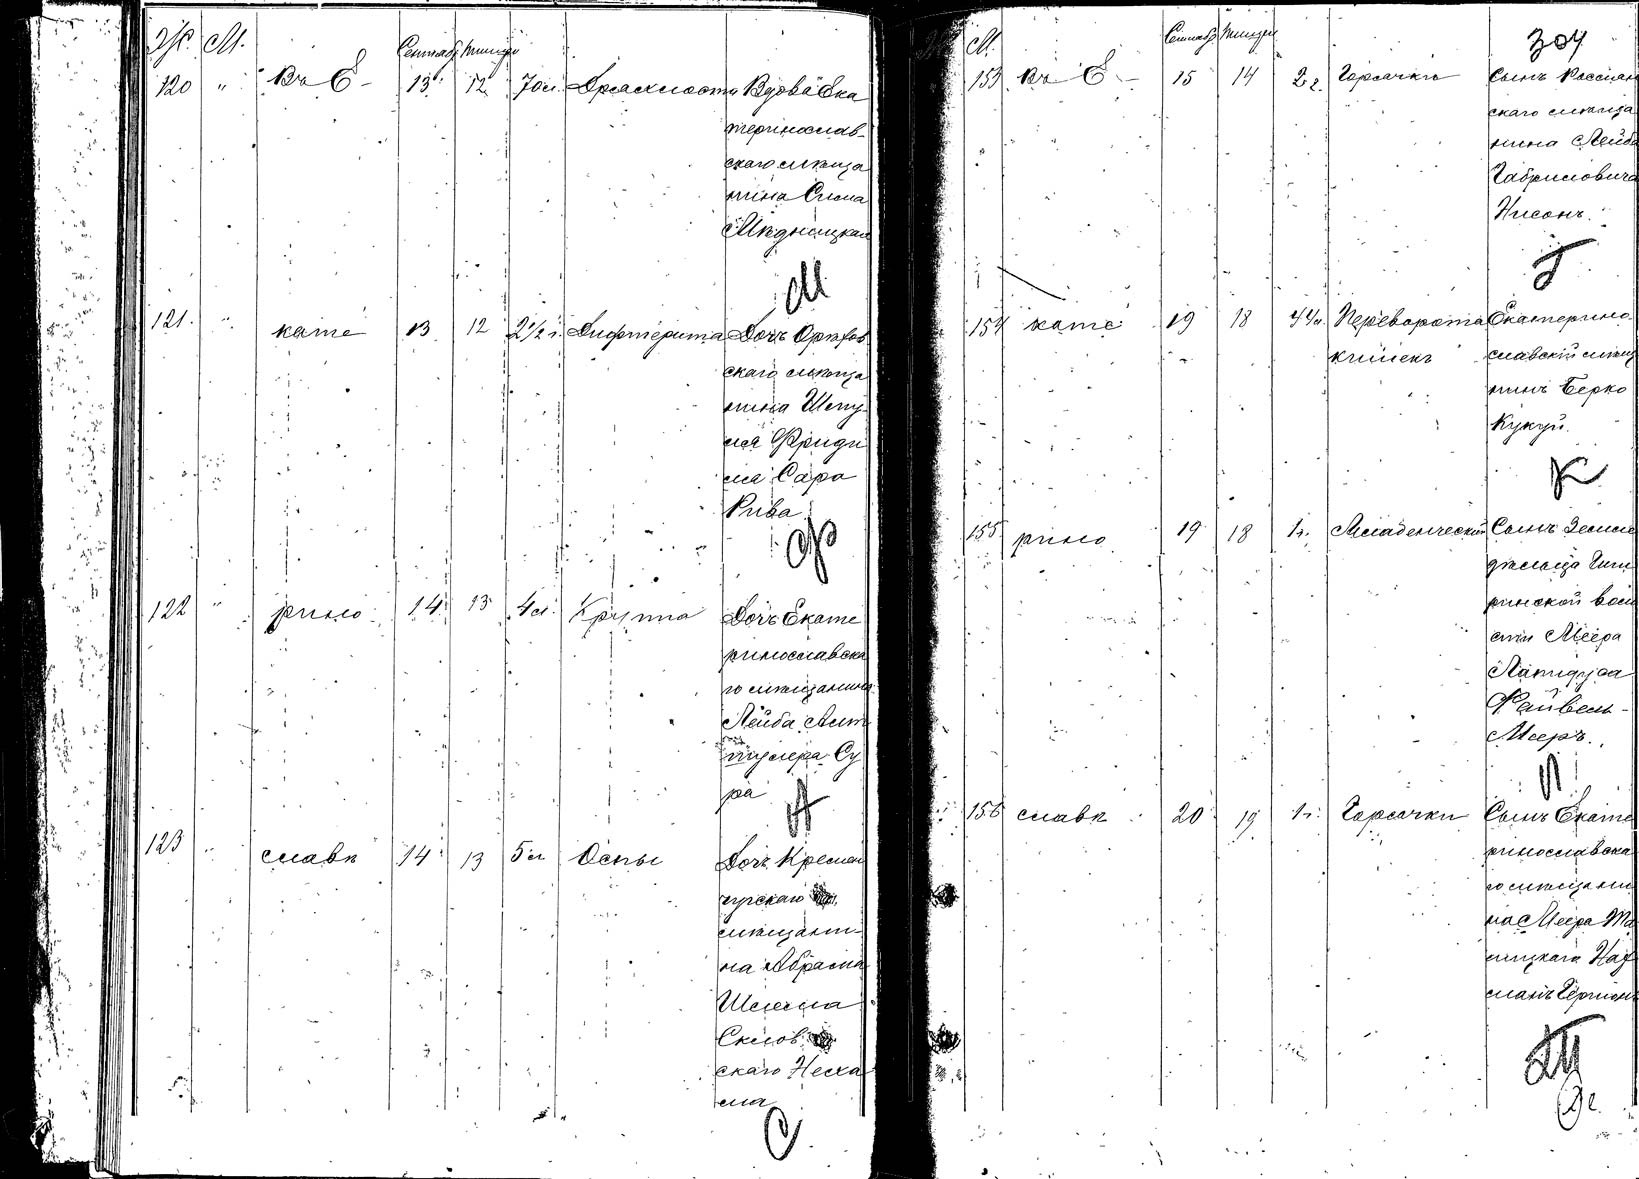 Ж. М. Сентябр Тишри
120 " Въ Е- 13 12 70 л. Дряхлости Вдова Ека
теринослав-
скаго мѣща
нина Сима
Мѣдницкая
М
121. " кате 13 12 2½ г. Дифтерита Дочь Орѣхов
скаго мѣща
нина Шму
ля Фриди
на Сара
Рива
Ф
122 " рино 14 13 4 м. Крупа Дочь Екате
ринославска
го мѣщанина
Лейба Альт
шулера Су
ра
А
123 " славѣ 14 13 5 м Оспы Дочь Кремен
чугскаго
мѣщани-
на Абрама
Шлема
скаго Неха
ма
С
М. Сентябр Тишри 304
153 Въ Е- 15 14 2 г. Горячки Сынъ Россіен
скаго мѣща
нина Лейба
Габриловича
Нисонъ.
Г
154 кате 19 18 44 л. Переворота Екатерино
кишекъ славскій мѣщ
нинъ Берко
Кукуй.
К
155 рино 19 18 1 г. Младенческій Сынъ Земле
дѣльца
ринской вол
сти Меера
Файвель-
Мееръ.
Л
156 славѣ 20 19 1 г. Горячки Сынъ Екате
ринославска
го мѣщани
на Меера
Нах
манъ Гершонъ